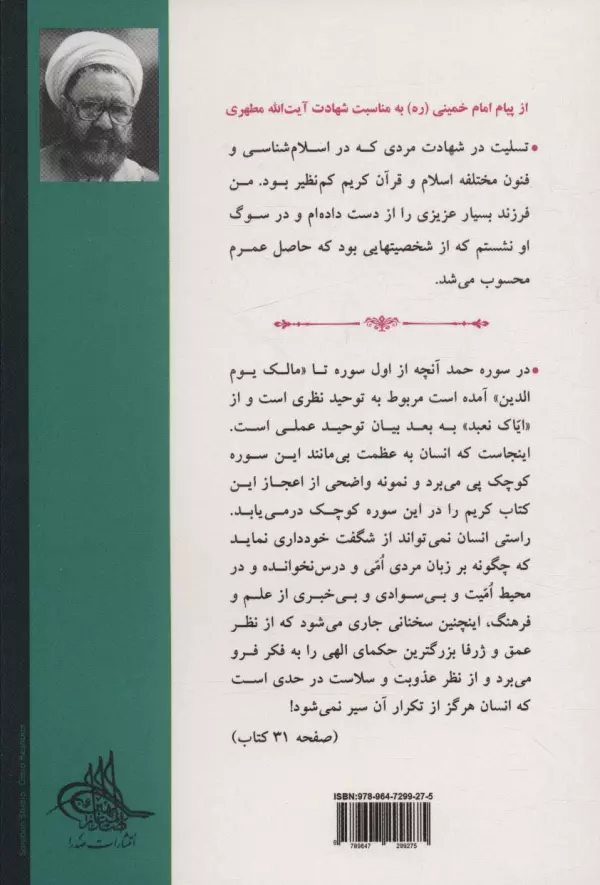 از پیام امام خمینی (ره) به مناسبت شهادت آیت‌الله مطهری
• تسلیت در شهادت مردی که در اسلام‌شناسی و
فنون مختلفه اسلام و قرآن کریم کم‌نظیر بود. من
فرزند بسیار عزیزی را از دست داده‌ام و در سوگ
او نشستم که از شخصیتهایی بود که حاصل عمرم
محسوب می‌شد.
• در سوره حمد آنچه از اول سوره تا «مالک یوم
الدین» آمده است مربوط به توحید نظری است و از
«ایّاک نعبد» به بعد بیان توحید عملی است.
اینجاست که انسان به عظمت بی‌مانند این سوره
کوچک پی می‌برد و نمونه واضحی از اعجاز این
کتاب کریم را در این سوره کوچک درمی‌یابد.
راستی انسان نمی‌تواند از شگفت خودداری نماید
که چگونه بر زبان مردی اُمّی و درس‌نخوانده و در
محیط اُمّیت و بی‌سوادی و بی‌خبری از علم و
فرهنگ، اینچنین سخنانی جاری می‌شود که از نظر
عمق و ژرفا بزرگترین حکمای الهی را به فکر فرو
می‌برد و از نظر عذوبت و سلاست در حدی است
که انسان هرگز از تکرار آن سیر نمی‌شود!
(صفحه ۳۱ کتاب)
ISBN:978-964-7299-27-5
9 789647 299275
انتشارات صدرا